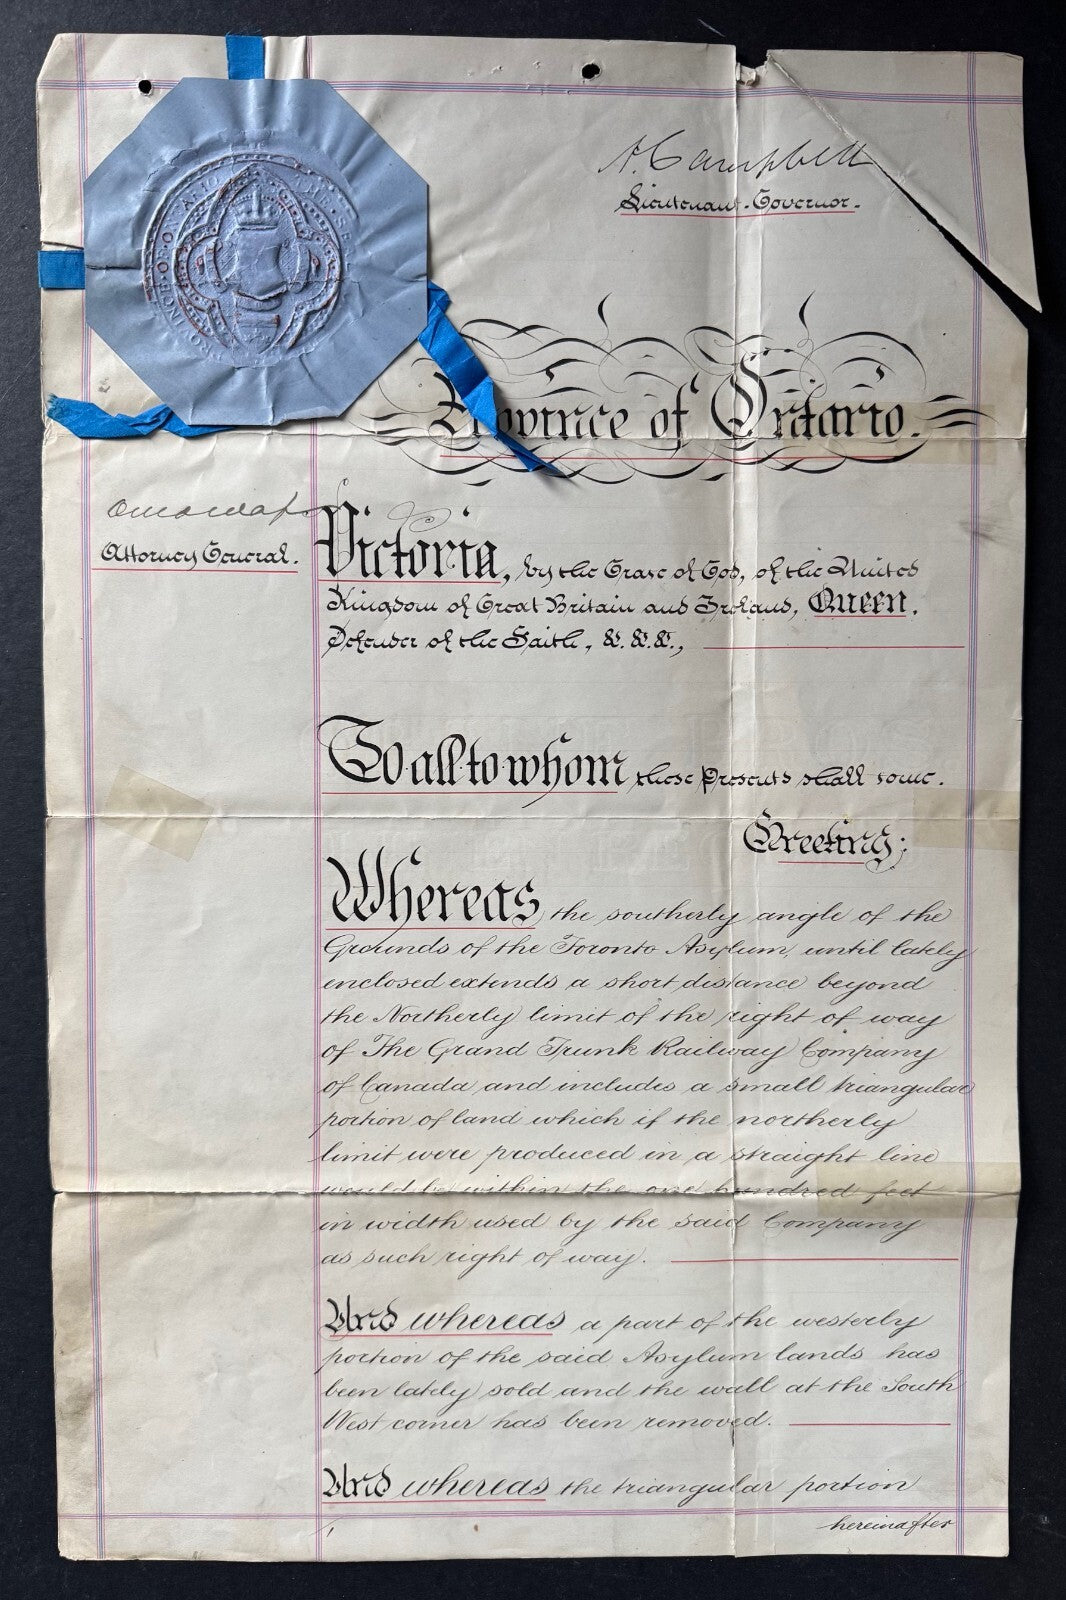 A Campbell
Lieutenant-Governor.
PROVINCE OF ONTARIO
Province of Ontario.
OMowat
Attorney General.
Victoria, by the Grace of God, of the United
Kingdom of Great Britain and Ireland, Queen,
Defender of the Faith, &. &. &.,
To all to whom these Presents shall come.
Greeting;
Whereas the southerly angle of the
Grounds of the Toronto Asylum, until lately
enclosed extends a short distance beyond
the Northerly limit of the right of way
of The Grand Trunk Railway Company
of Canada and includes a small triangular
portion of land which if the northerly
limit were produced in a straight line
would be within the one hundred feet
in width used by the said Company
as such right of way.
And whereas a part of the westerly
portion of the said Asylum lands has
been lately sold and the wall at the South
West corner has been removed.
And whereas the triangular portion
hereinafter